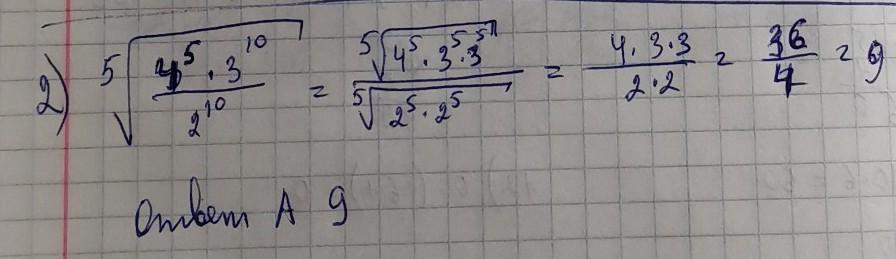 2) ⁵√(4⁵·3¹⁰/2¹⁰) = ⁵√(4⁵·3⁵·3⁵)/⁵√(2⁵·2⁵) = 4·3·3/2·2 = 36/4 = 9
Ответ А 9